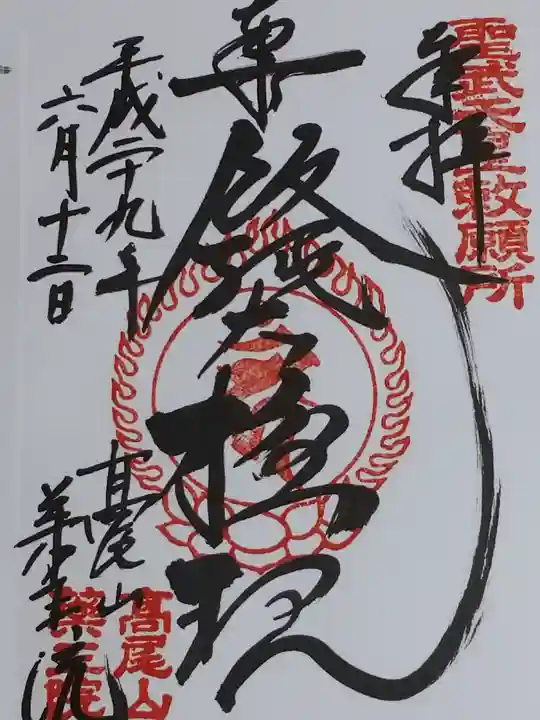 聖武天皇敕願所
奉拝
尊 飯縄大権現
平成二十九年
六月十二日
高尾山
薬王院
高尾山
薬王院